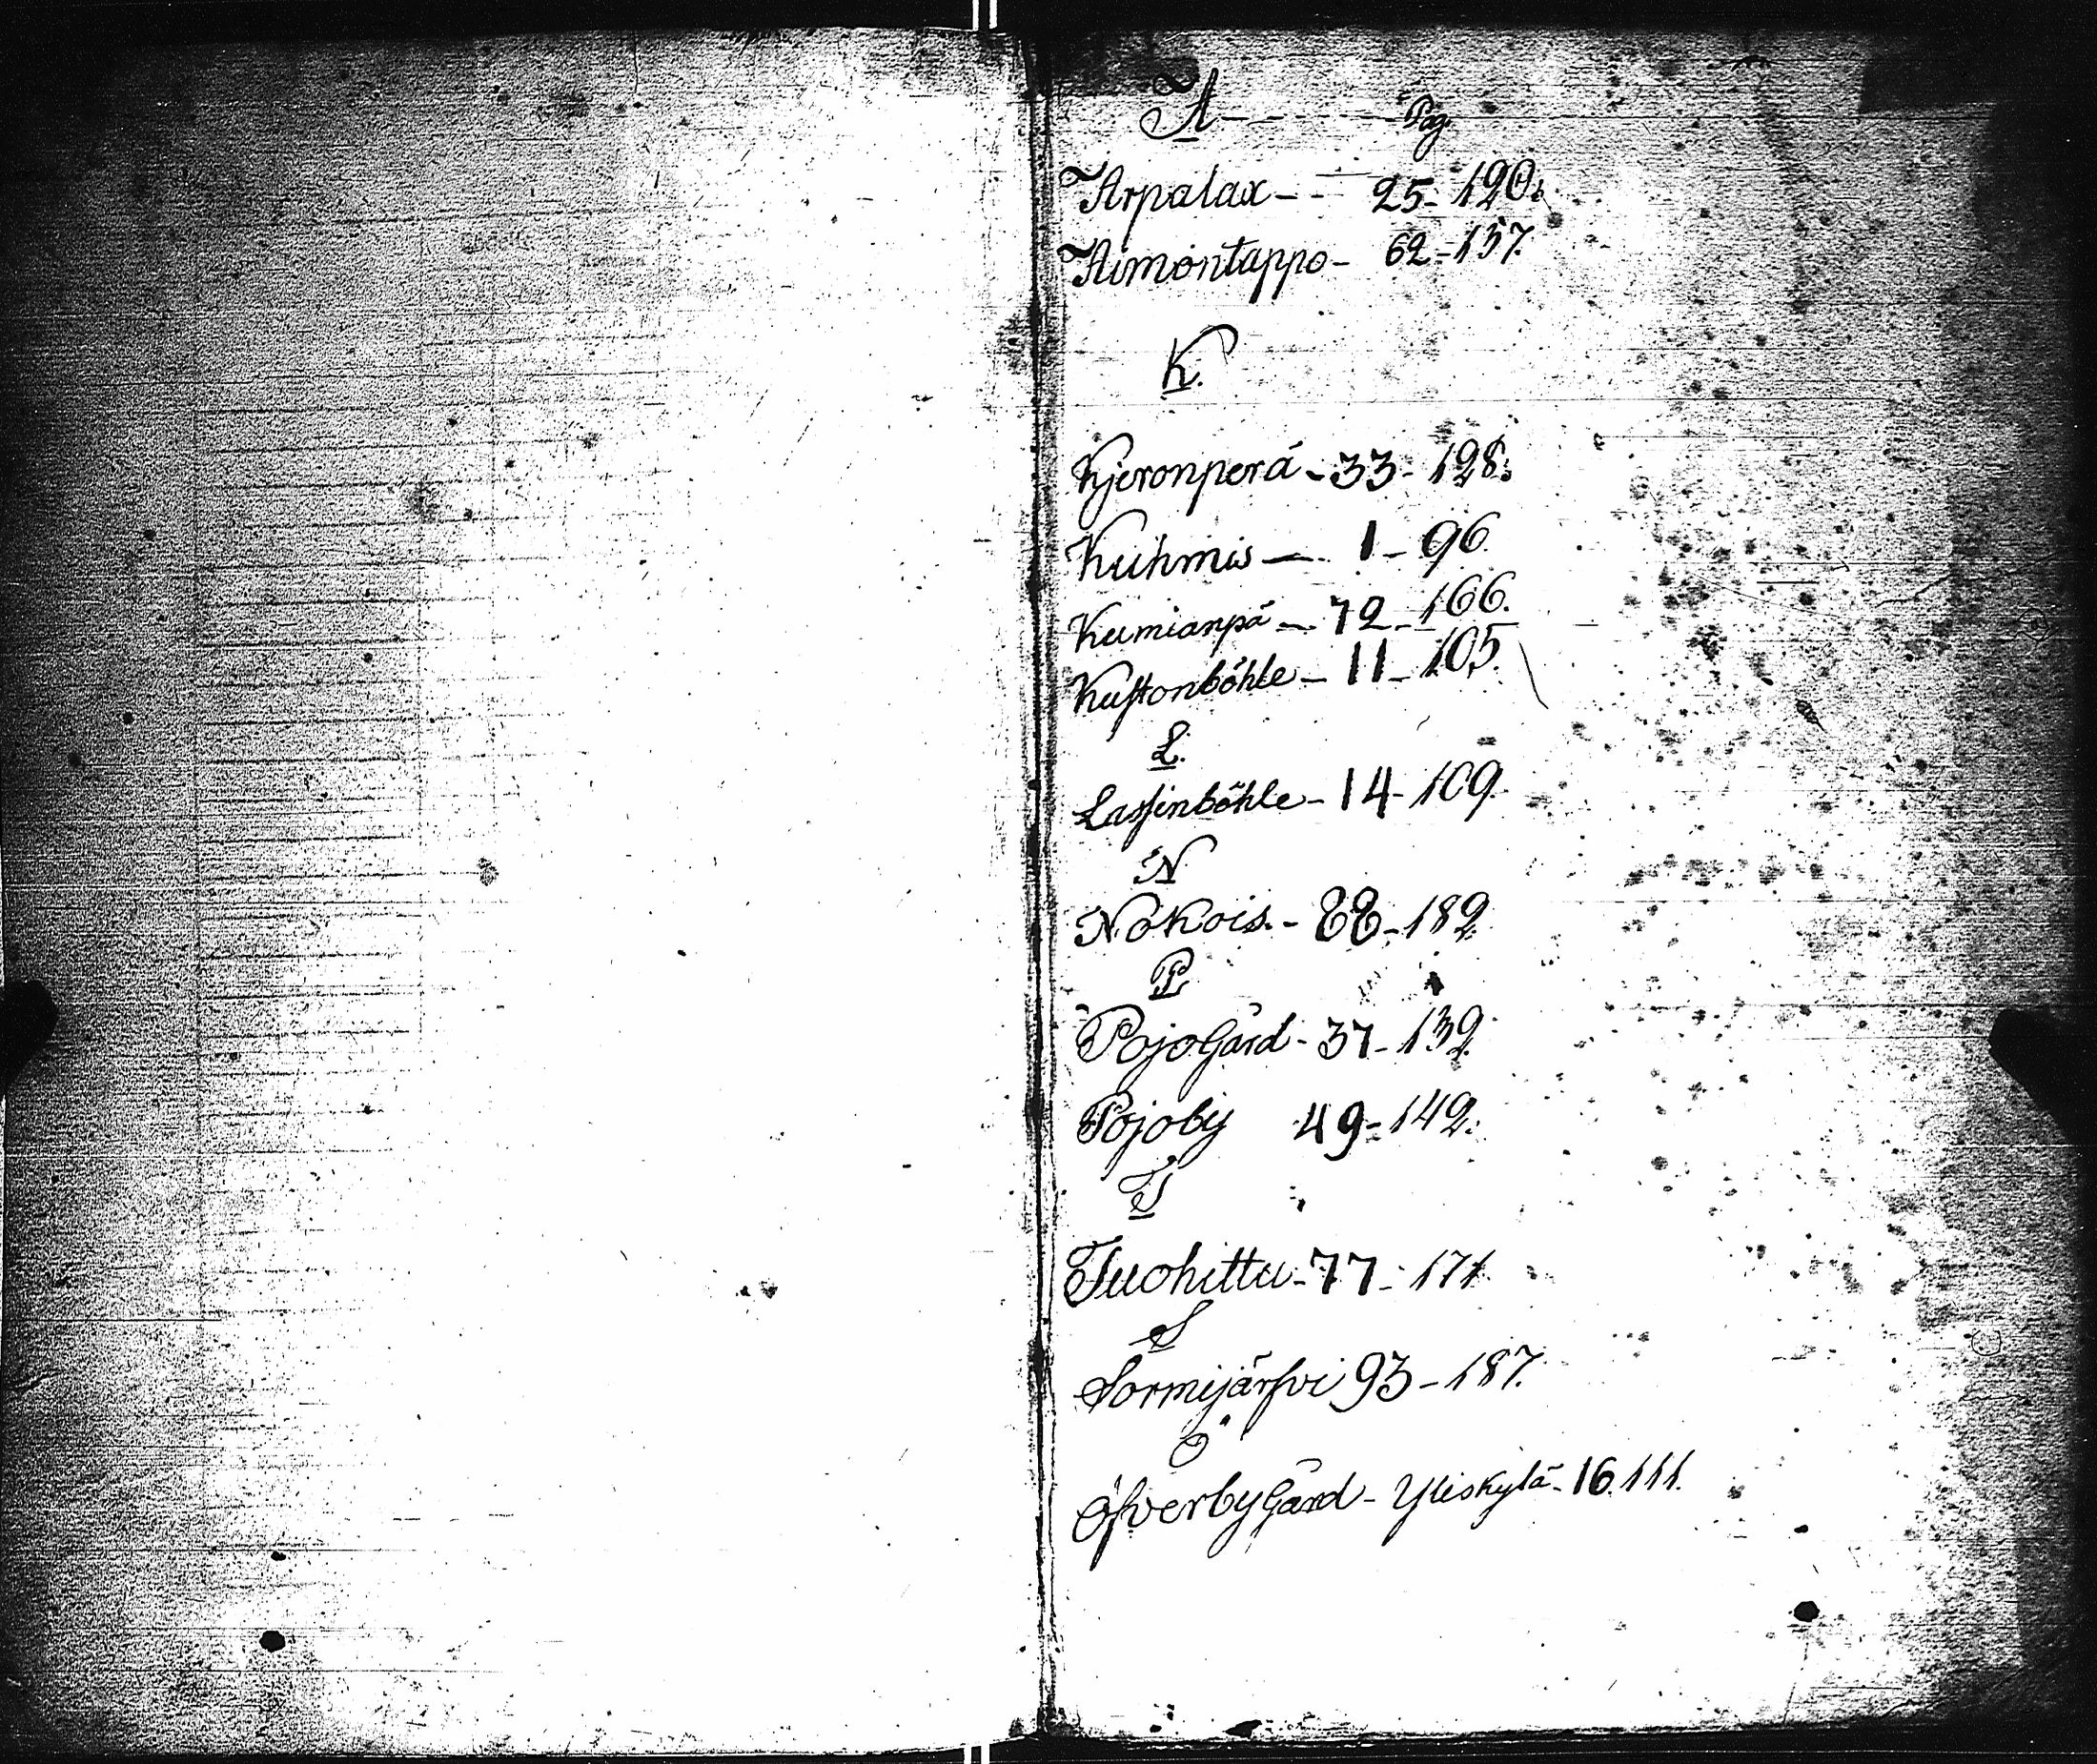 A - - - - - - Pag.
Arpalax - - 25 - 120.
Aimontappo - 62 - 157.
K.
Kjeronperä - 33 - 128.
Kuhmis — 1 - 96.
Kumianpä — 72 - 166.
Kustonböhle - 11 - 105.
L.
Lassinböhle - 14 - 109.
N
Nokois. - 88 - 182.
P
PojoGård - 37 - 132.
Pojoby 49 - 142.
T
Tuohittu - 77 - 171
S
Sormijärfvi 93 - 187.
Ö
ÖfverbyGård - Yliskylä - 16. 111.